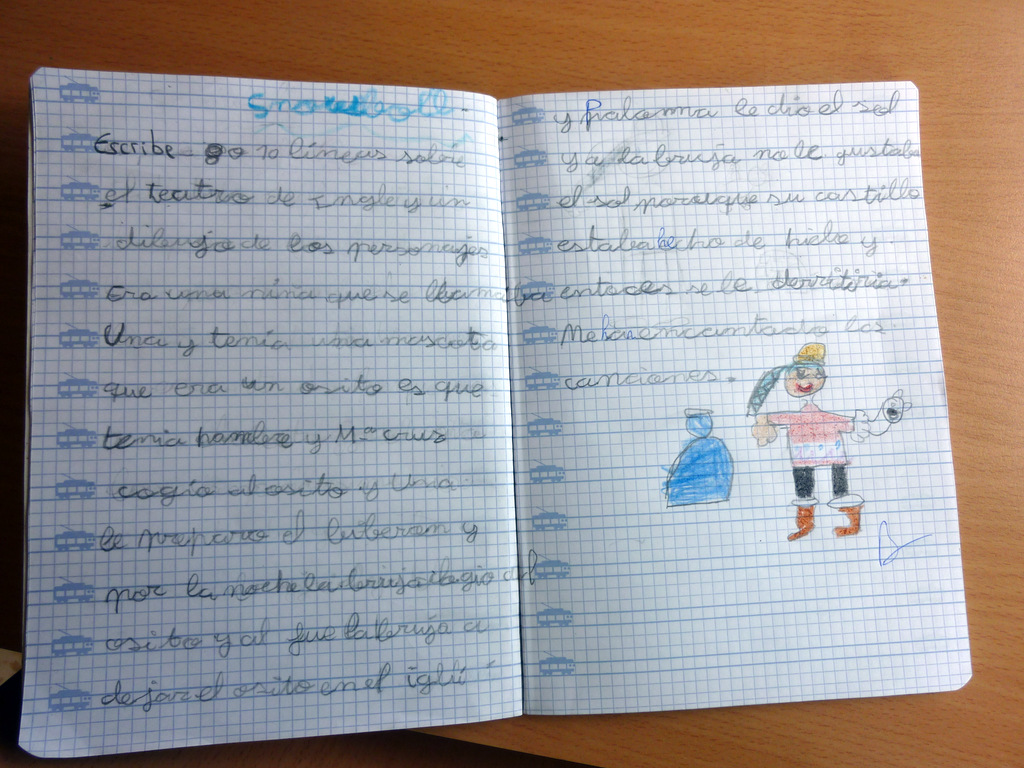 Snowball.
Escribe 10 líneas sobre
el teatro de ingle y un
dibujo de los personajes
Era una niña que se llamaba
Una y tenia una mascota
que era un osito es que
tenia hambre y Mª cruz
cogio al osito y Una
le preparo el biberom y
por la noche la bruja cogio al
osito y al fue la bruja a
dejar el osito en el iglú
y Paloma le dio el sol
y a la bruja no le gustaba
el sol poraque su castillo
estaba hecho de hielo y
entoces se le derritiria.
Me han emcantado las
canciones.